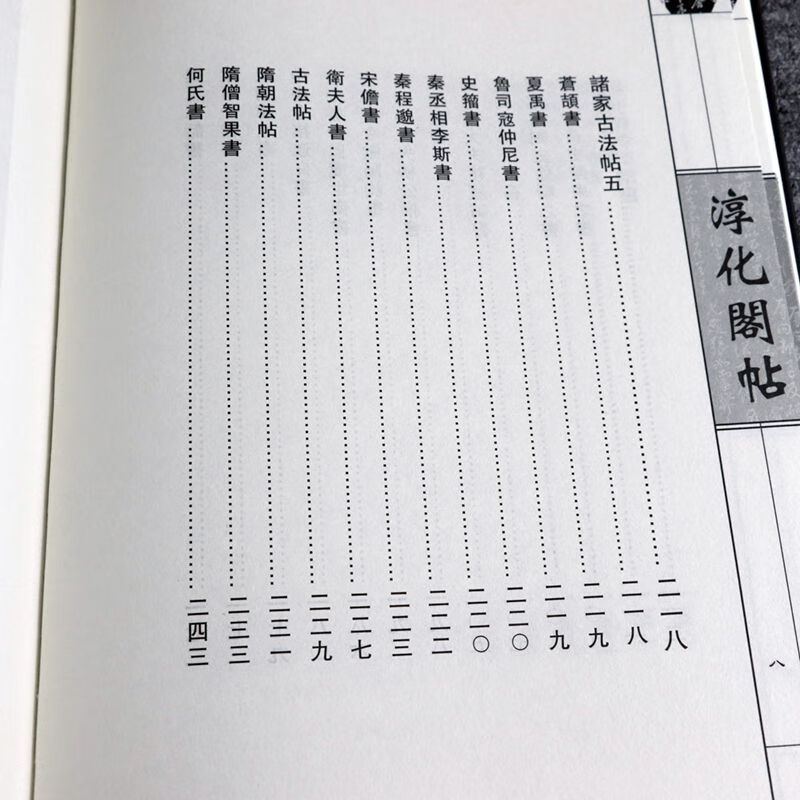 淳化閣帖
八
諸家古法帖五……二一八
蒼頡書……二一八
夏禹書……二一九
魯司寇仲尼書……二一九
史籀書……二二〇
秦丞相李斯書……二二〇
秦程邈書……二二二
宋儋書……二二三
衛夫人書……二二七
古法帖……二二九
隋朝法帖……二三一
隋僧智果書……二三三
何氏書……二四三